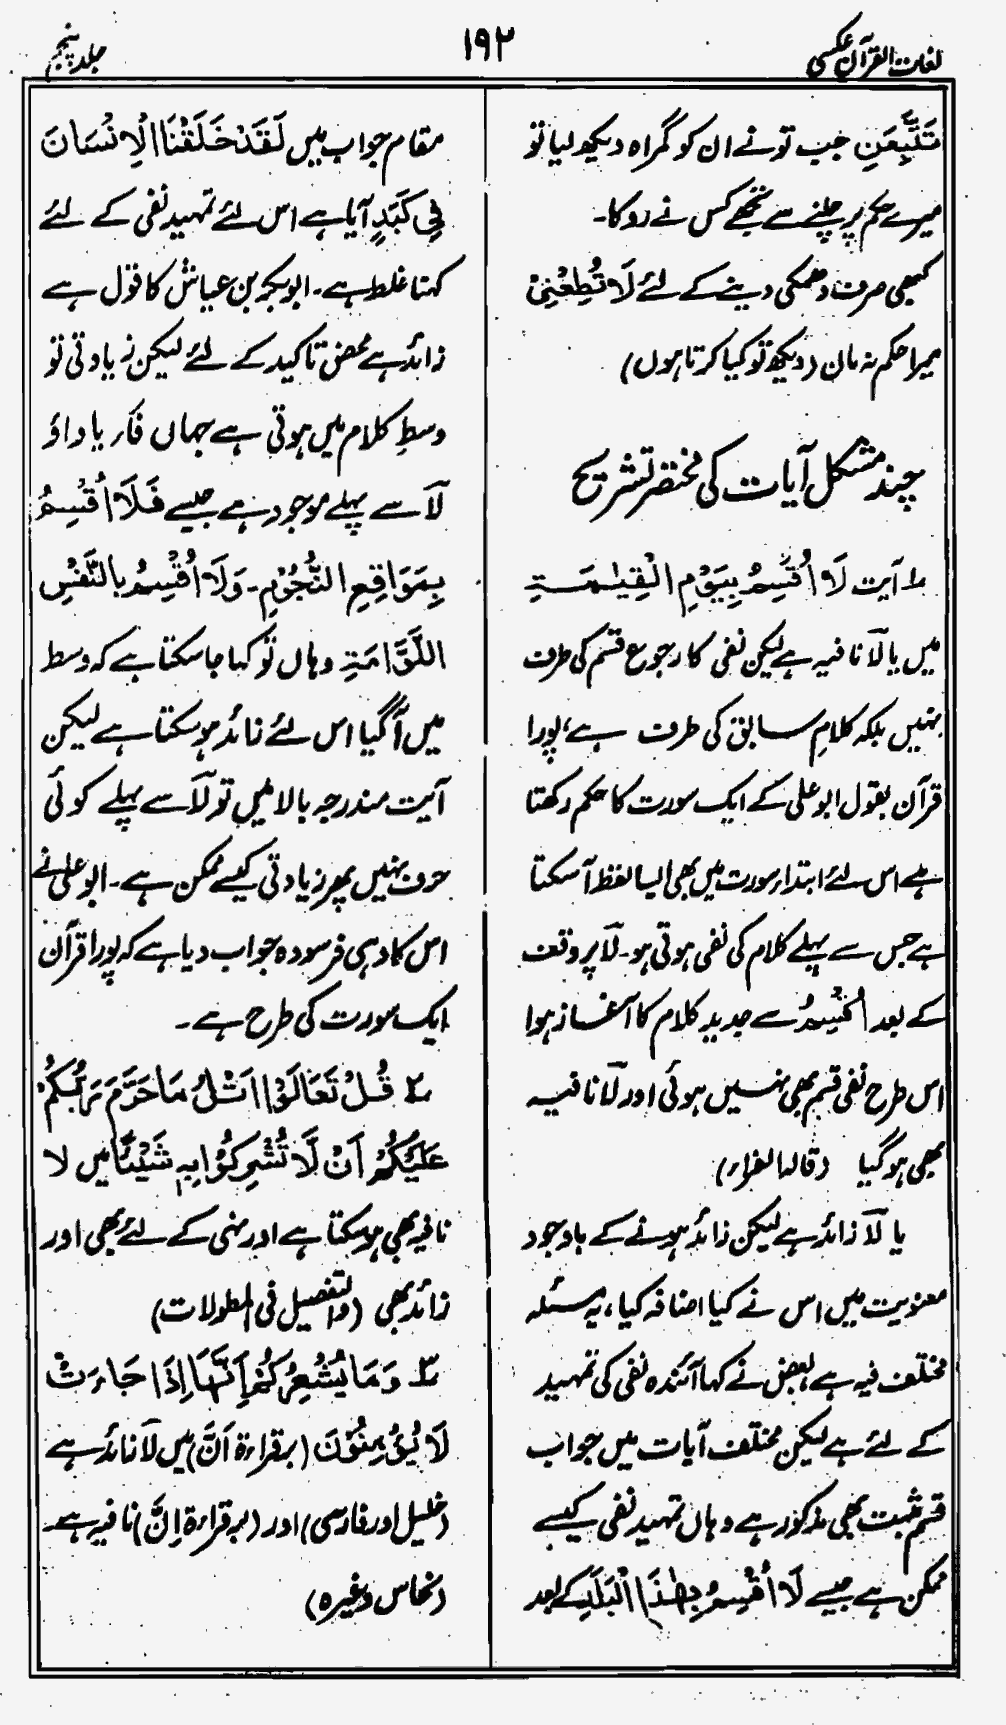 لغات القرآن عکسی
۱۹۲
جلد پنجم
تَتَّبِعَنِ جب تو نے ان کو گمراہ دیکھ لیا تو
میرے حکم پر چلنے سے تجھے کس نے روکا۔
کبھی صرف دھمکی دینے کے لئے لَا تُطِعْنِیْ
میرا حکم نہ مان (دیکھ تو کیا کرتا ہوں)
چند مشکل آیات کی مختصر تشریح
۱؎ آیت لَا اُقْسِمُ بِیَوْمِ الْقِیٰمَةِ
میں یا لَا نافیہ ہے لیکن نفی کا رجوع قسم کی طرف
نہیں بلکہ کلامِ سابق کی طرف ہے، پورا
قرآن بقول ابو علی کے ایک سورت کا حکم رکھتا
ہے اس لئے ابتداء سورت میں بھی ایسا لفظ آ سکتا
ہے جس سے پہلے کلام کی نفی ہوتی ہو۔ لَا پر وقف
کے بعد اُقْسِمُ سے جدید کلام کا آغاز ہوا
اس طرح نفی قسم بھی نہیں ہوئی اور لَا نافیہ
بھی ہو گیا (قالہ الفراء)
یا لَا زائد ہے لیکن زائد ہونے کے باوجود
معنویت میں اس نے کیا اضافہ کیا، یہ مسئلہ
مختلف فیہ ہے بعض نے کہا آئندہ نفی کی تمہید
کے لئے ہے لیکن مختلف آیات میں جواب
قسم مثبت بھی مذکور ہے وہاں تمہید نفی کیسے
ممکن ہے جیسے لَا اُقْسِمُ بِھٰذَا الْبَلَدِ کے بعد
مقام جواب میں لَقَدْ خَلَقْنَا الْاِنْسَانَ
فِیْ کَبَدٍ آیا ہے اس لئے تمہید نفی کے لئے
کہنا غلط ہے۔ ابوبکر بن عیاش کا قول ہے
زائد ہے محض تاکید کے لئے لیکن زیادتی تو
وسطِ کلام میں ہوتی ہے جہاں فاء یا واؤ
لَا سے پہلے موجود ہے جیسے فَلَا اُقْسِمُ
بِمَوَاقِعِ النُّجُوْمِ۔ وَلَا اُقْسِمُ بِالنَّفْسِ
اللَّوَّامَةِ وہاں تو کہا جا سکتا ہے کہ وسط
میں آگیا اس لئے زائد ہو سکتا ہے لیکن
آیت مندرجہ بالا میں تو لَا سے پہلے کوئی
حرف نہیں پھر زیادتی کیسے ممکن ہے۔ ابو علی نے
اس کا وہی فرسودہ جواب دیا ہے کہ پورا قرآن
ایک سورت کی طرح ہے۔
۲؎ قُلْ تَعَالَوْا اَتْلُ مَا حَرَّمَ رَبُّکُمْ
عَلَیْکُمْ اَنْ لَّا تُشْرِکُوْا بِہٖ شَیْئًا میں لا
نافیہ بھی ہو سکتا ہے اور نہی کے لئے بھی اور
زائد بھی (والتفصیل فی المطولات)
۳؎ وَمَا یُشْعِرُکُمْ اَنَّھَا اِذَا جَاءَتْ
لَا یُؤْمِنُوْنَ (بر قراءۃ اَنَّ) میں لَا زائد ہے
(خلیل اور فارسی) اور (بر قراءۃ اِنَّ) نافیہ ہے۔
(نحاس وغیرہ)